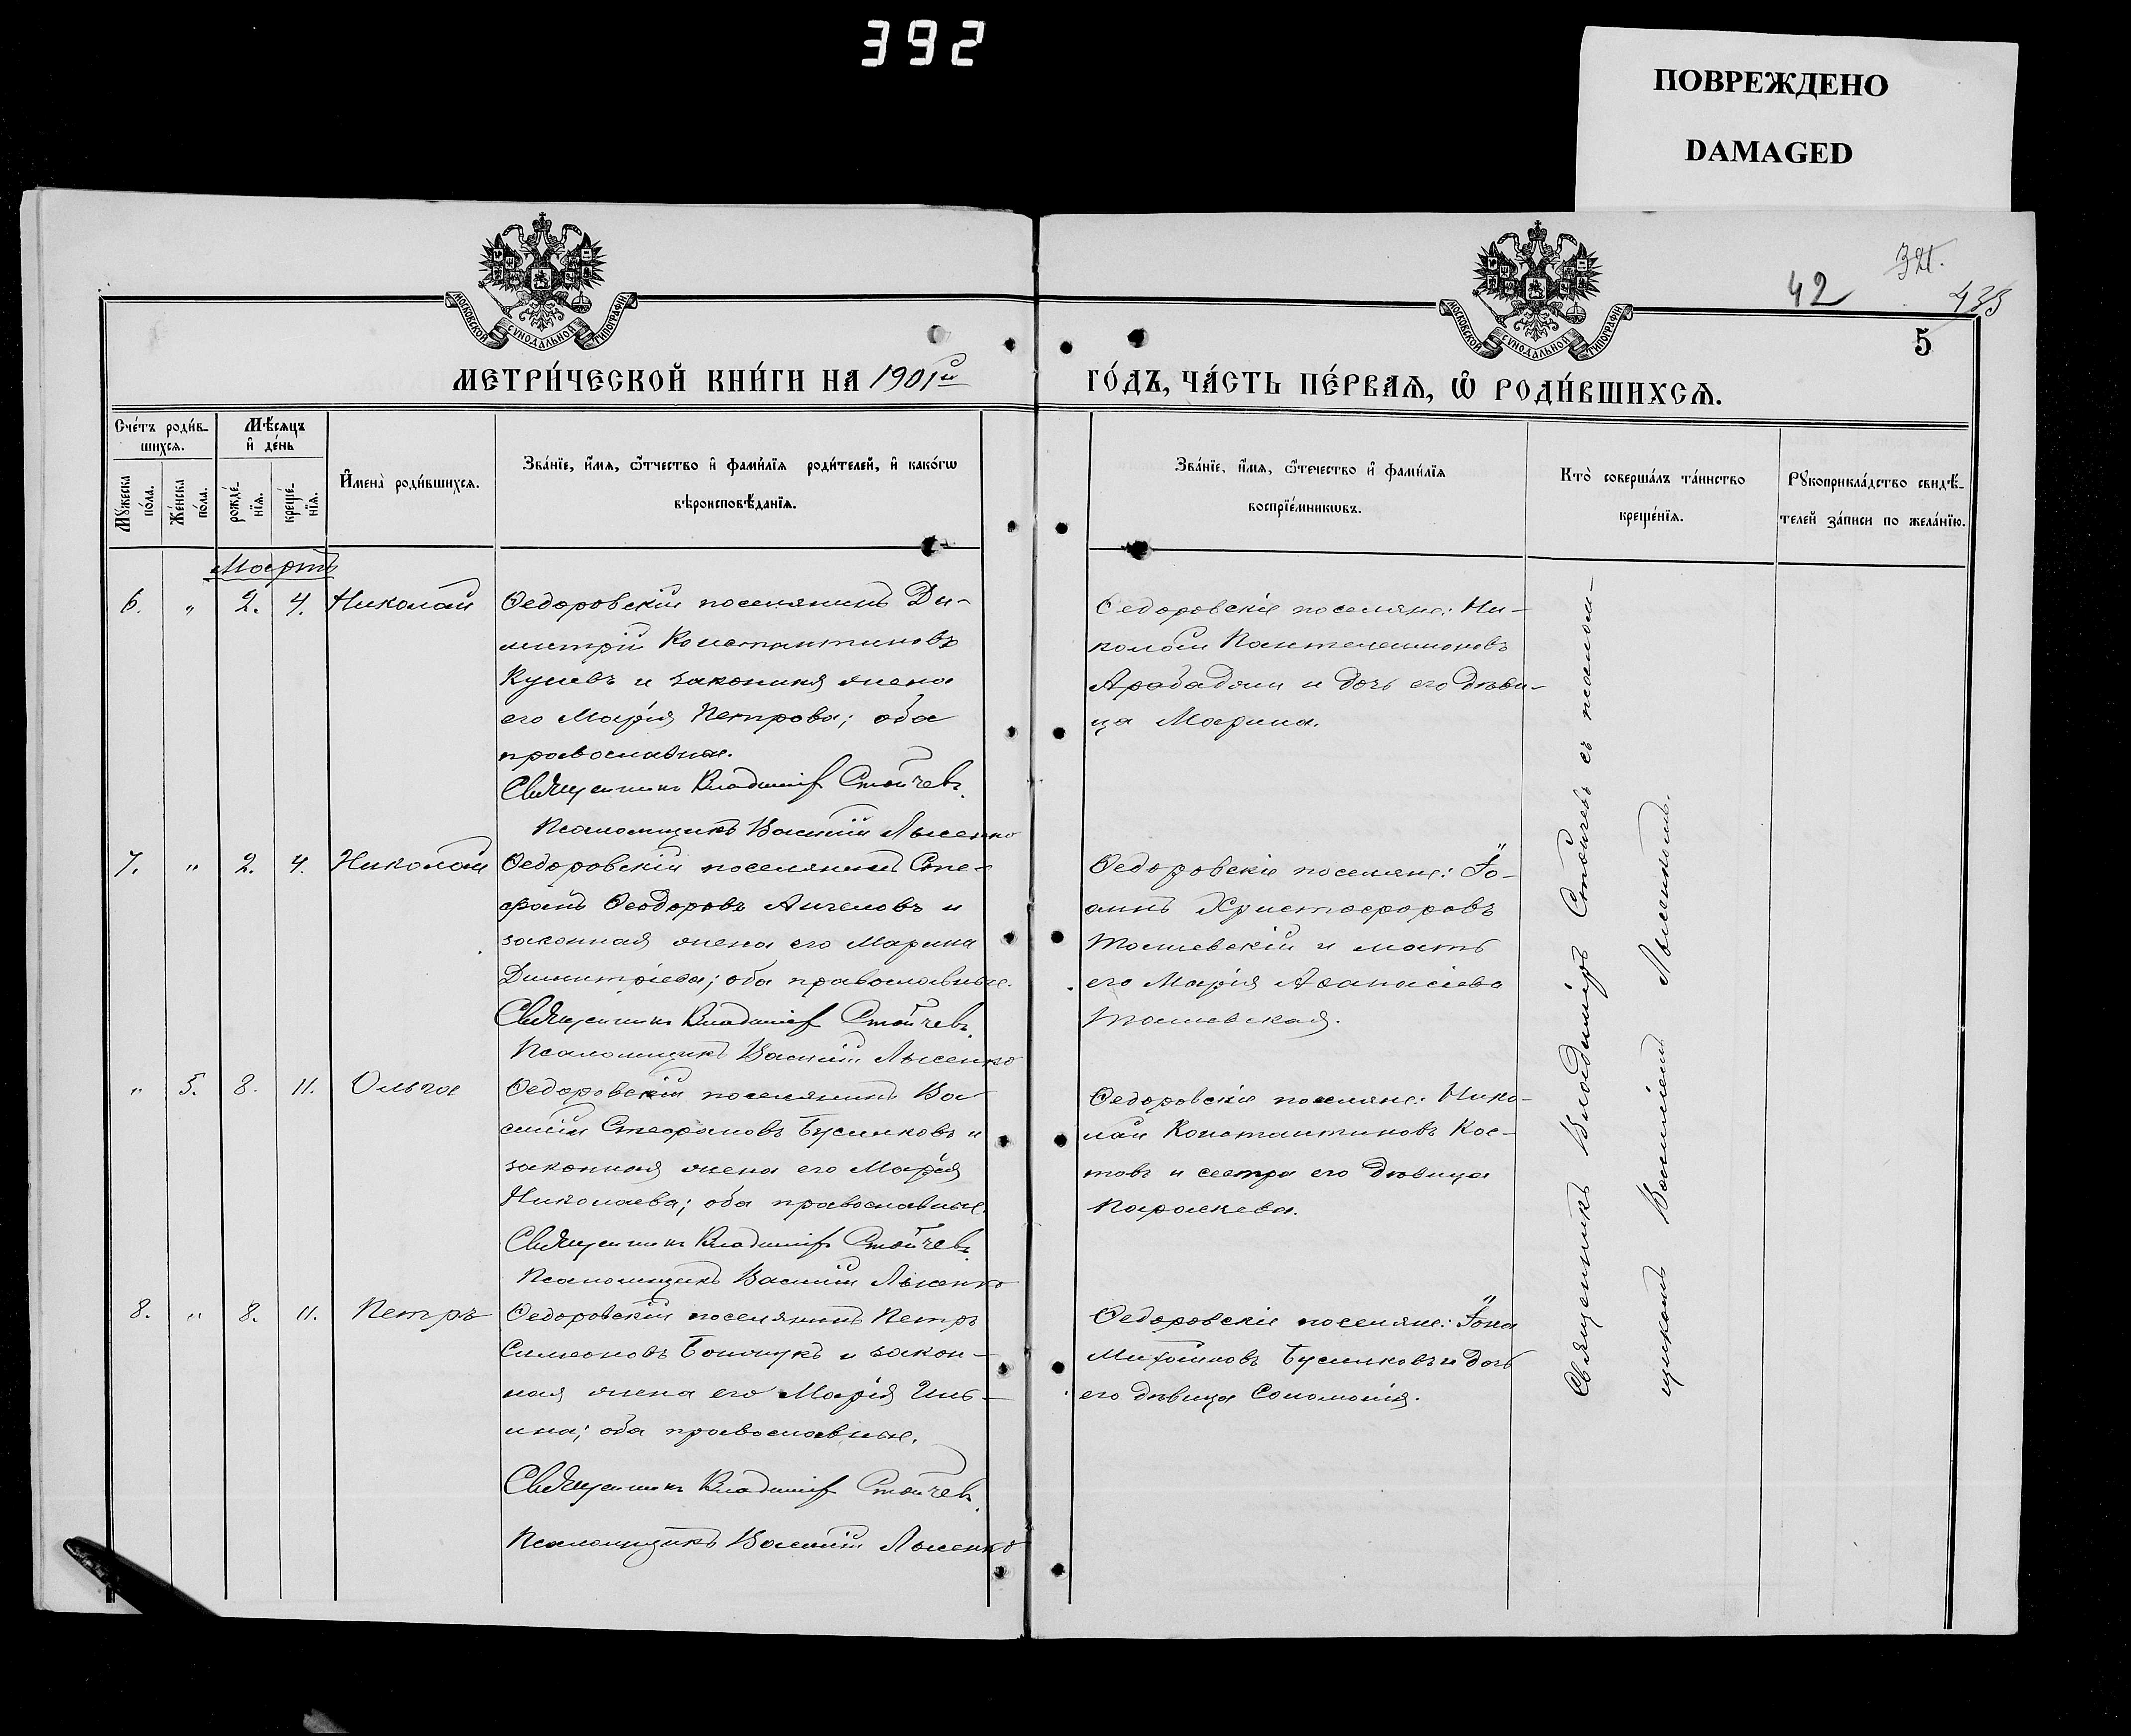 392
ПОВРЕЖДЕНО
DAMAGED
МОСКОВСКОЙ СѴНОДАЛЬНОЙ ТИПОГРАФІИ
МОСКОВСКОЙ СѴНОДАЛЬНОЙ ТИПОГРАФІИ
42
321.
435
5
МЕТРИ́ЧЕСКОЙ КНИ́ГИ НА 1901й
ГО́ДЪ, ЧА́СТЬ ПЕ́РВАѦ, Ѡ҆ РОДИ́ВШИХСѦ.
Сче́тъ роди́в-
шихсѧ.
Мꙋ́жеска
по́ла.
Же́нска
по́ла.
Мѣ́сѧцъ
и҆ де́нь
рожде́-
нїѧ.
креще́-
нїѧ.
И҆мена̀ роди́вшихсѧ.
Зва́нїе, и҆́мѧ, ѻ҆́тчество и҆ фами́лїѧ роди́телей, и҆ како́гѡ
вѣроисповѣ́данїѧ.
Зва́нїе, и҆́мѧ, ѻ҆́течество и҆ фами́лїѧ
воспрїе́мникѡвъ.
Кто̀ соверша́лъ та́инство
креще́нїѧ.
Рꙋкоприкла́дство свидѣ́-
телей за́писи по жела́нїю.
Мартъ
6. " 2. 4. Николай
Ѳедоровскій поселянинъ Ди-
митрій Константиновъ
Куневъ и законная жена
его Марія Петрова; оба
православные.
Священникъ Владимір Стойчевъ.
Псаломщикъ Василій Лысенко
Ѳедоровскіе поселяне: Ни-
колай Пантелеимоновъ
Арабаджи и дочь его дѣви-
ца Марина.
7. " 2. 4. Николай
Ѳедоровскій поселянинъ Сте-
фанъ Ѳеодоровъ Ангеловъ и
законная жена его Марина
Димитріева; оба православные.
Священникъ Владимір Стойчевъ.
Псаломщикъ Василій Лысенко
Ѳедоровскіе поселяне: Іо-
аннъ Христофоровъ
Тошевскій и мать
его Марія Аѳанасіева
Тошевская.
" 5. 8. 11. Ольга
Ѳедоровскій поселянинъ Ва-
силій Стефановъ Бусилковъ и
законная жена его Марія
Николаева; оба православные.
Священникъ Владимір Стойчевъ.
Псаломщикъ Василій Лысенко
Ѳедоровскіе поселяне: Нико-
лай Константиновъ Кос-
товъ и сестра его дѣвица
Параскева.
8. " 8. 11. Петръ
Ѳедоровскій поселянинъ Петръ
Симеоновъ и закон-
ная жена его Марія Иль-
ина; оба православные.
Священникъ Владимір Стойчевъ.
Псаломщикъ Василій Лысенко
Ѳедоровскіе поселяне: Іона
Михайловъ Бусилковъ и дочь
его дѣвица Соломонія.
Священникъ Владиміръ Стойчевъ съ псалом-
щикомъ Василіемъ Лысенкомъ.